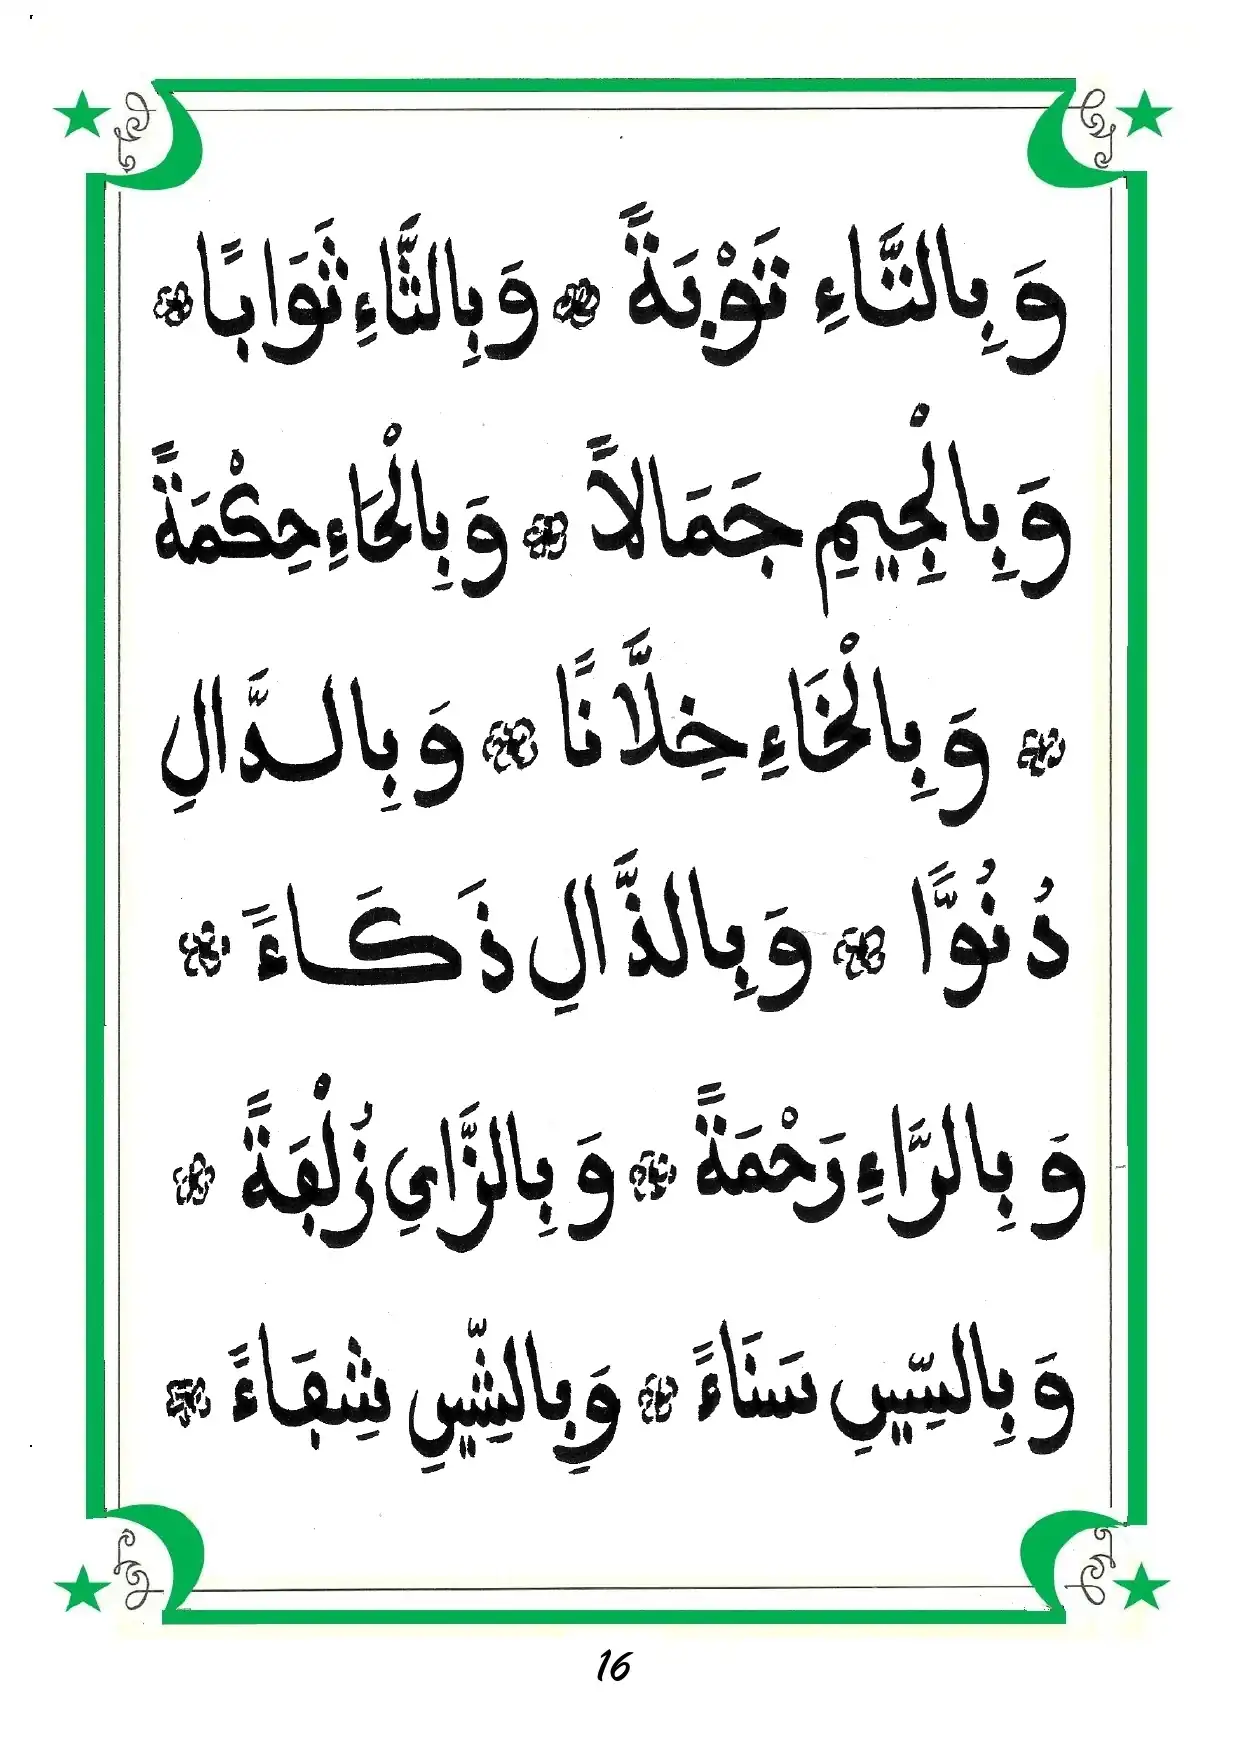 وَبِالتَّاءِ تَوْبَةً ۞ وَبِالثَّاءِ ثَوَابًا ۞
وَبِالْجِيمِ جَمَالاً ۞ وَبِالْحَاءِ حِكْمَةً
۞ وَبِالْخَاءِ خِلَّانًا ۞ وَبِالدَّالِ
دُنُوًّا ۞ وَبِالذَّالِ ذَكَاءً ۞
وَبِالرَّاءِ رَحْمَةً ۞ وَبِالزَّايِ زُلْڢَةً ۞
وَبِالسِّينِ سَنَاءً ۞ وَبِالشِّينِ شِڢَاءً ۞
16